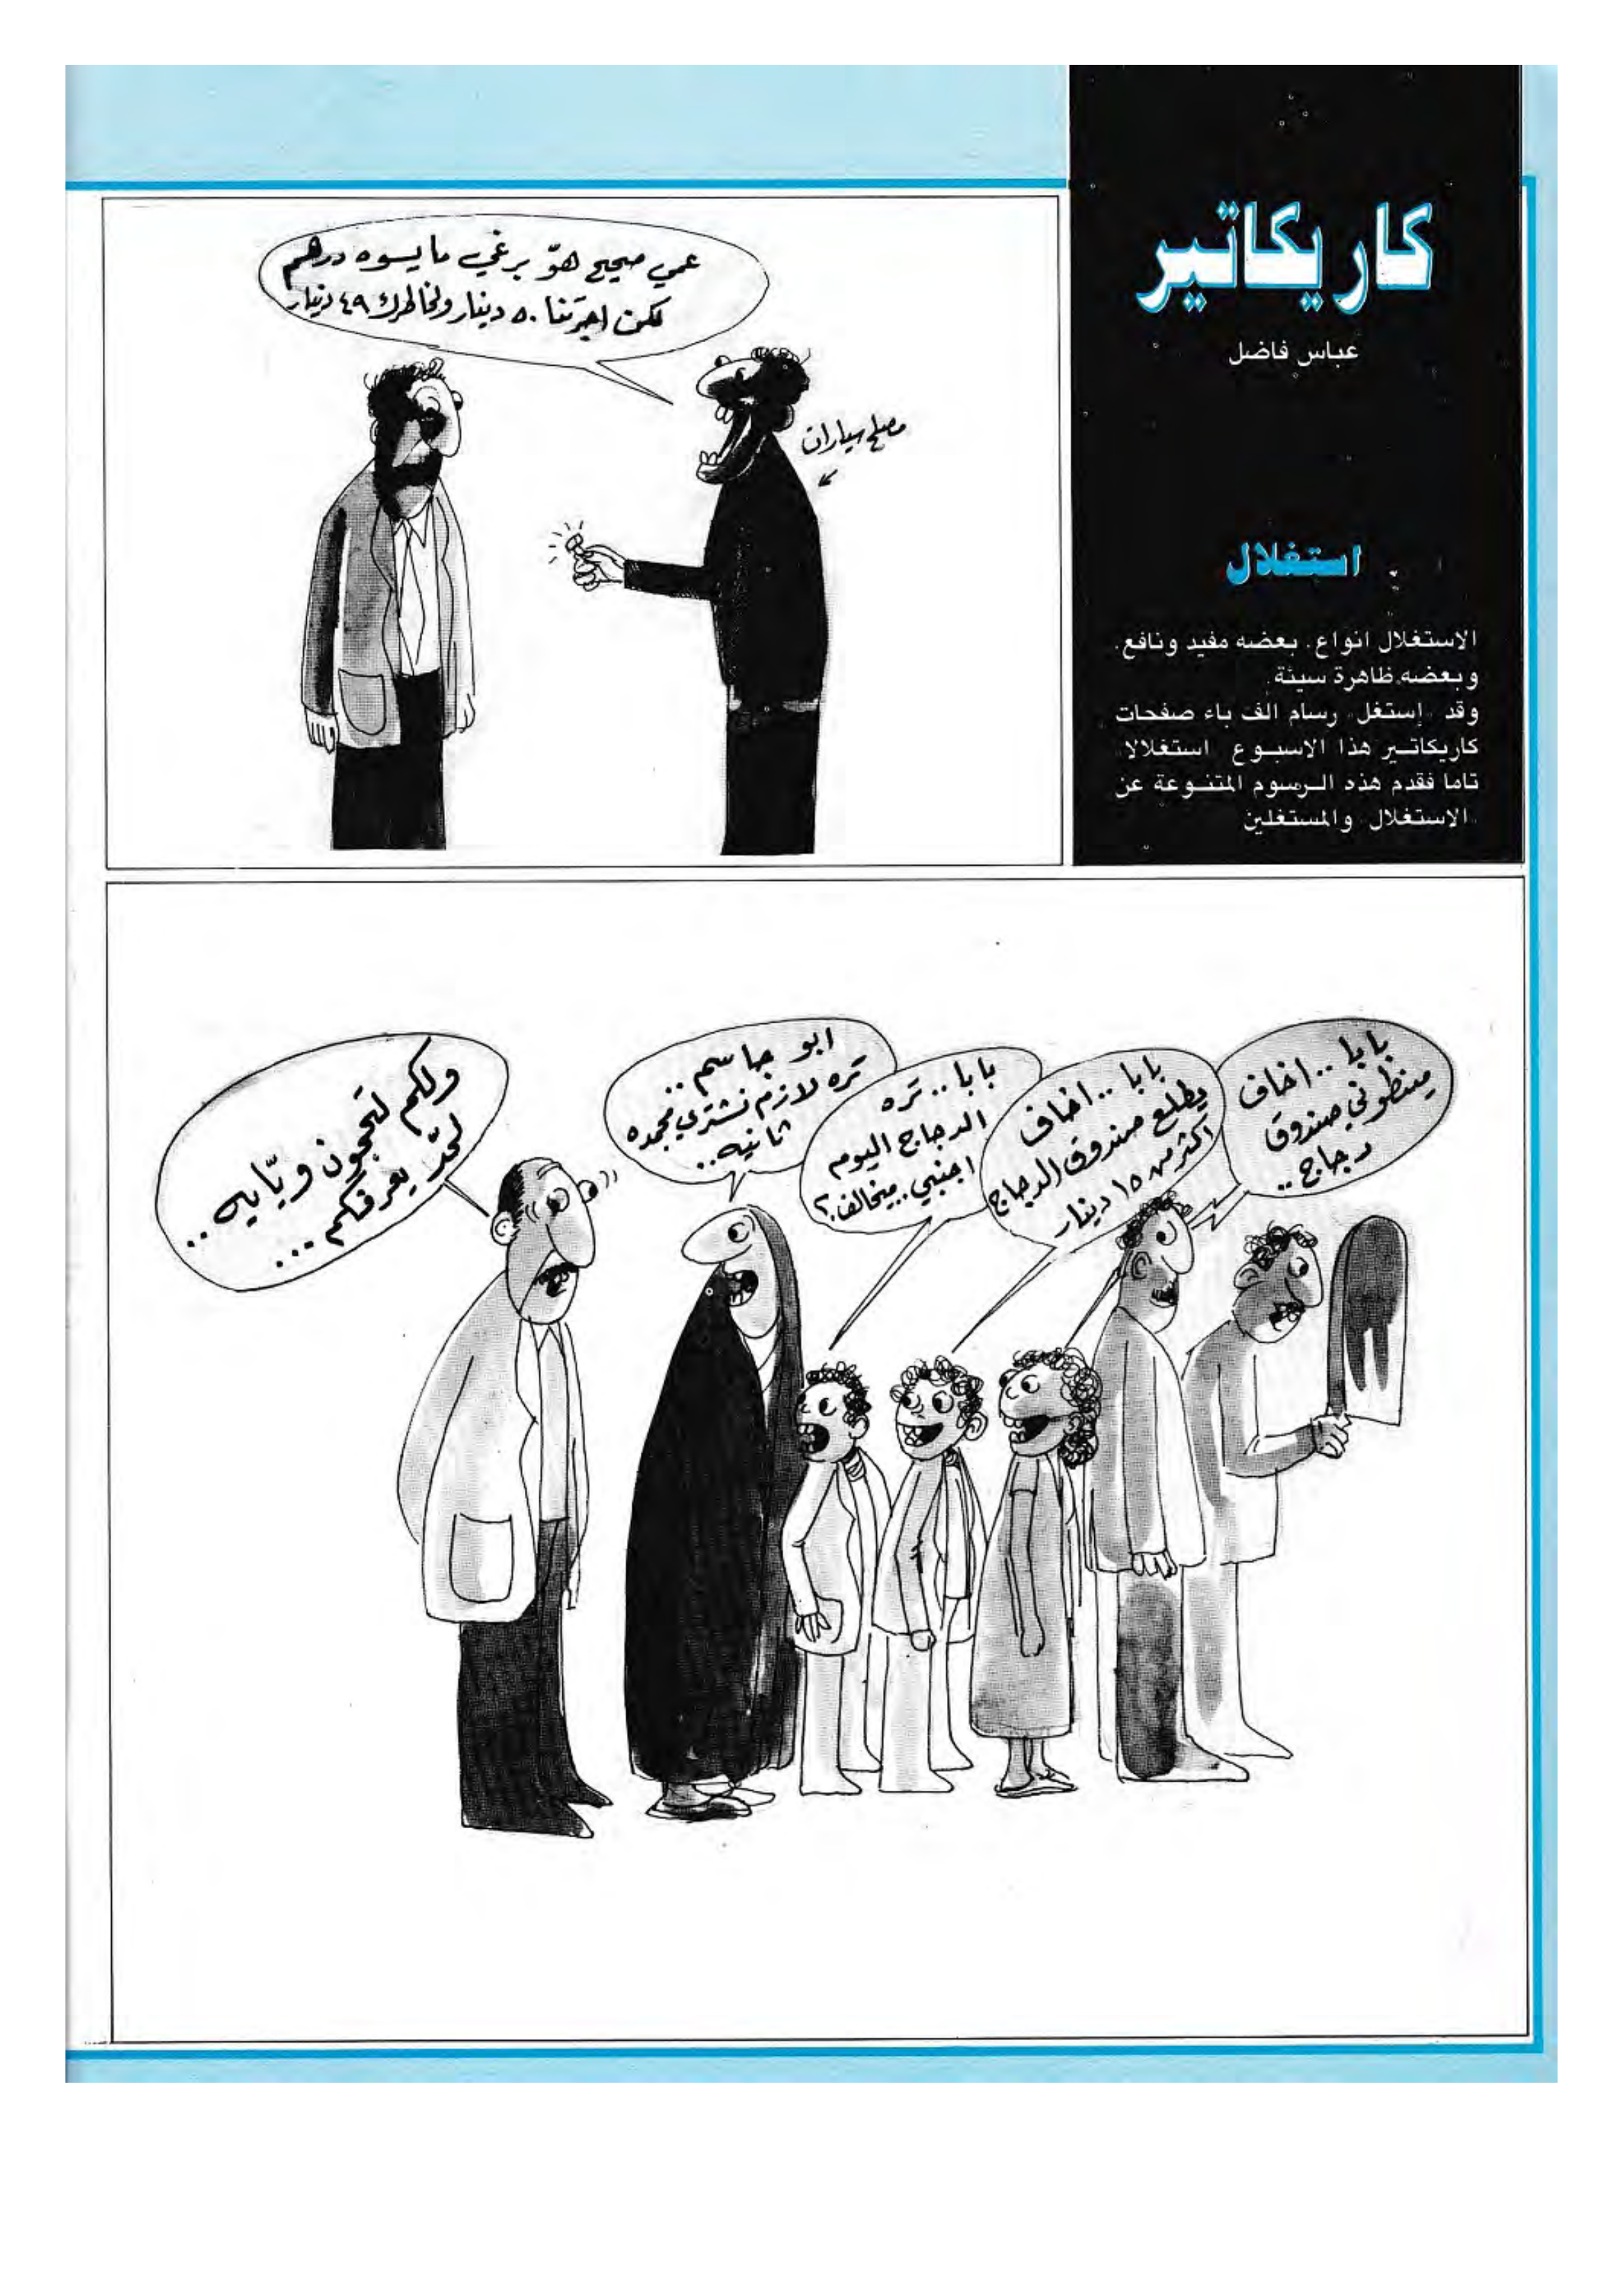 كاريكاتير
عباس فاضل
استغلال
الاستغلال انواع. بعضه مفيد ونافع.
وبعضه ظاهرة سيئة.
وقد «إستغل» رسام الف باء صفحات
كاريكاتير هذا الاسبوع «استغلالا»
تاما فقدم هذه الرسوم المتنوعة عن
«الاستغلال» والمستغلين
عمي صحيح هوّ برغي ما يسوه درهم
لكن اجرتنا ٥٠ دينار ولخاطرك ٤٩ دينار
مصلح سيارات
بابا.. اخاف
مينطوني صندوق
دجاج..
بابا.. اخاف
يطلع صندوق الدجاج
اكثر من ١٥ دينار
بابا.. تره
الدجاج اليوم
اجنبي.. ميخالف؟
ابو جاسم..
تره لازم نشتري مجمده
ثانيه..
ولكم لتحچون ويّايه..
لحّد يعرفكم...